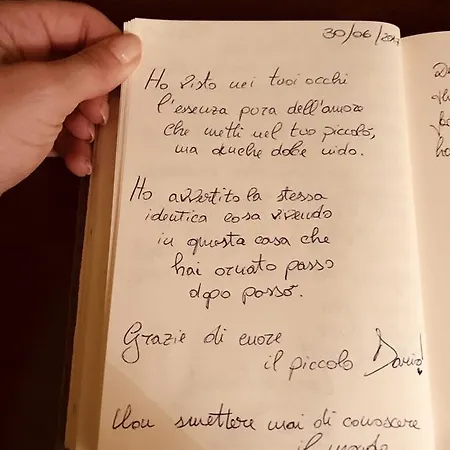 30/06/201
Ho visto nei tuoi occhi
l'essenza pura dell'amore
che metti nel tuo piccolo,
ma anche dolce nido.
Ho avvertito la stessa
identica cosa vivendo
in questa casa che
hai ornato passo
dopo passo.
Grazie di cuore
il piccolo Dario!
Non smettere mai di conoscere
il mondo